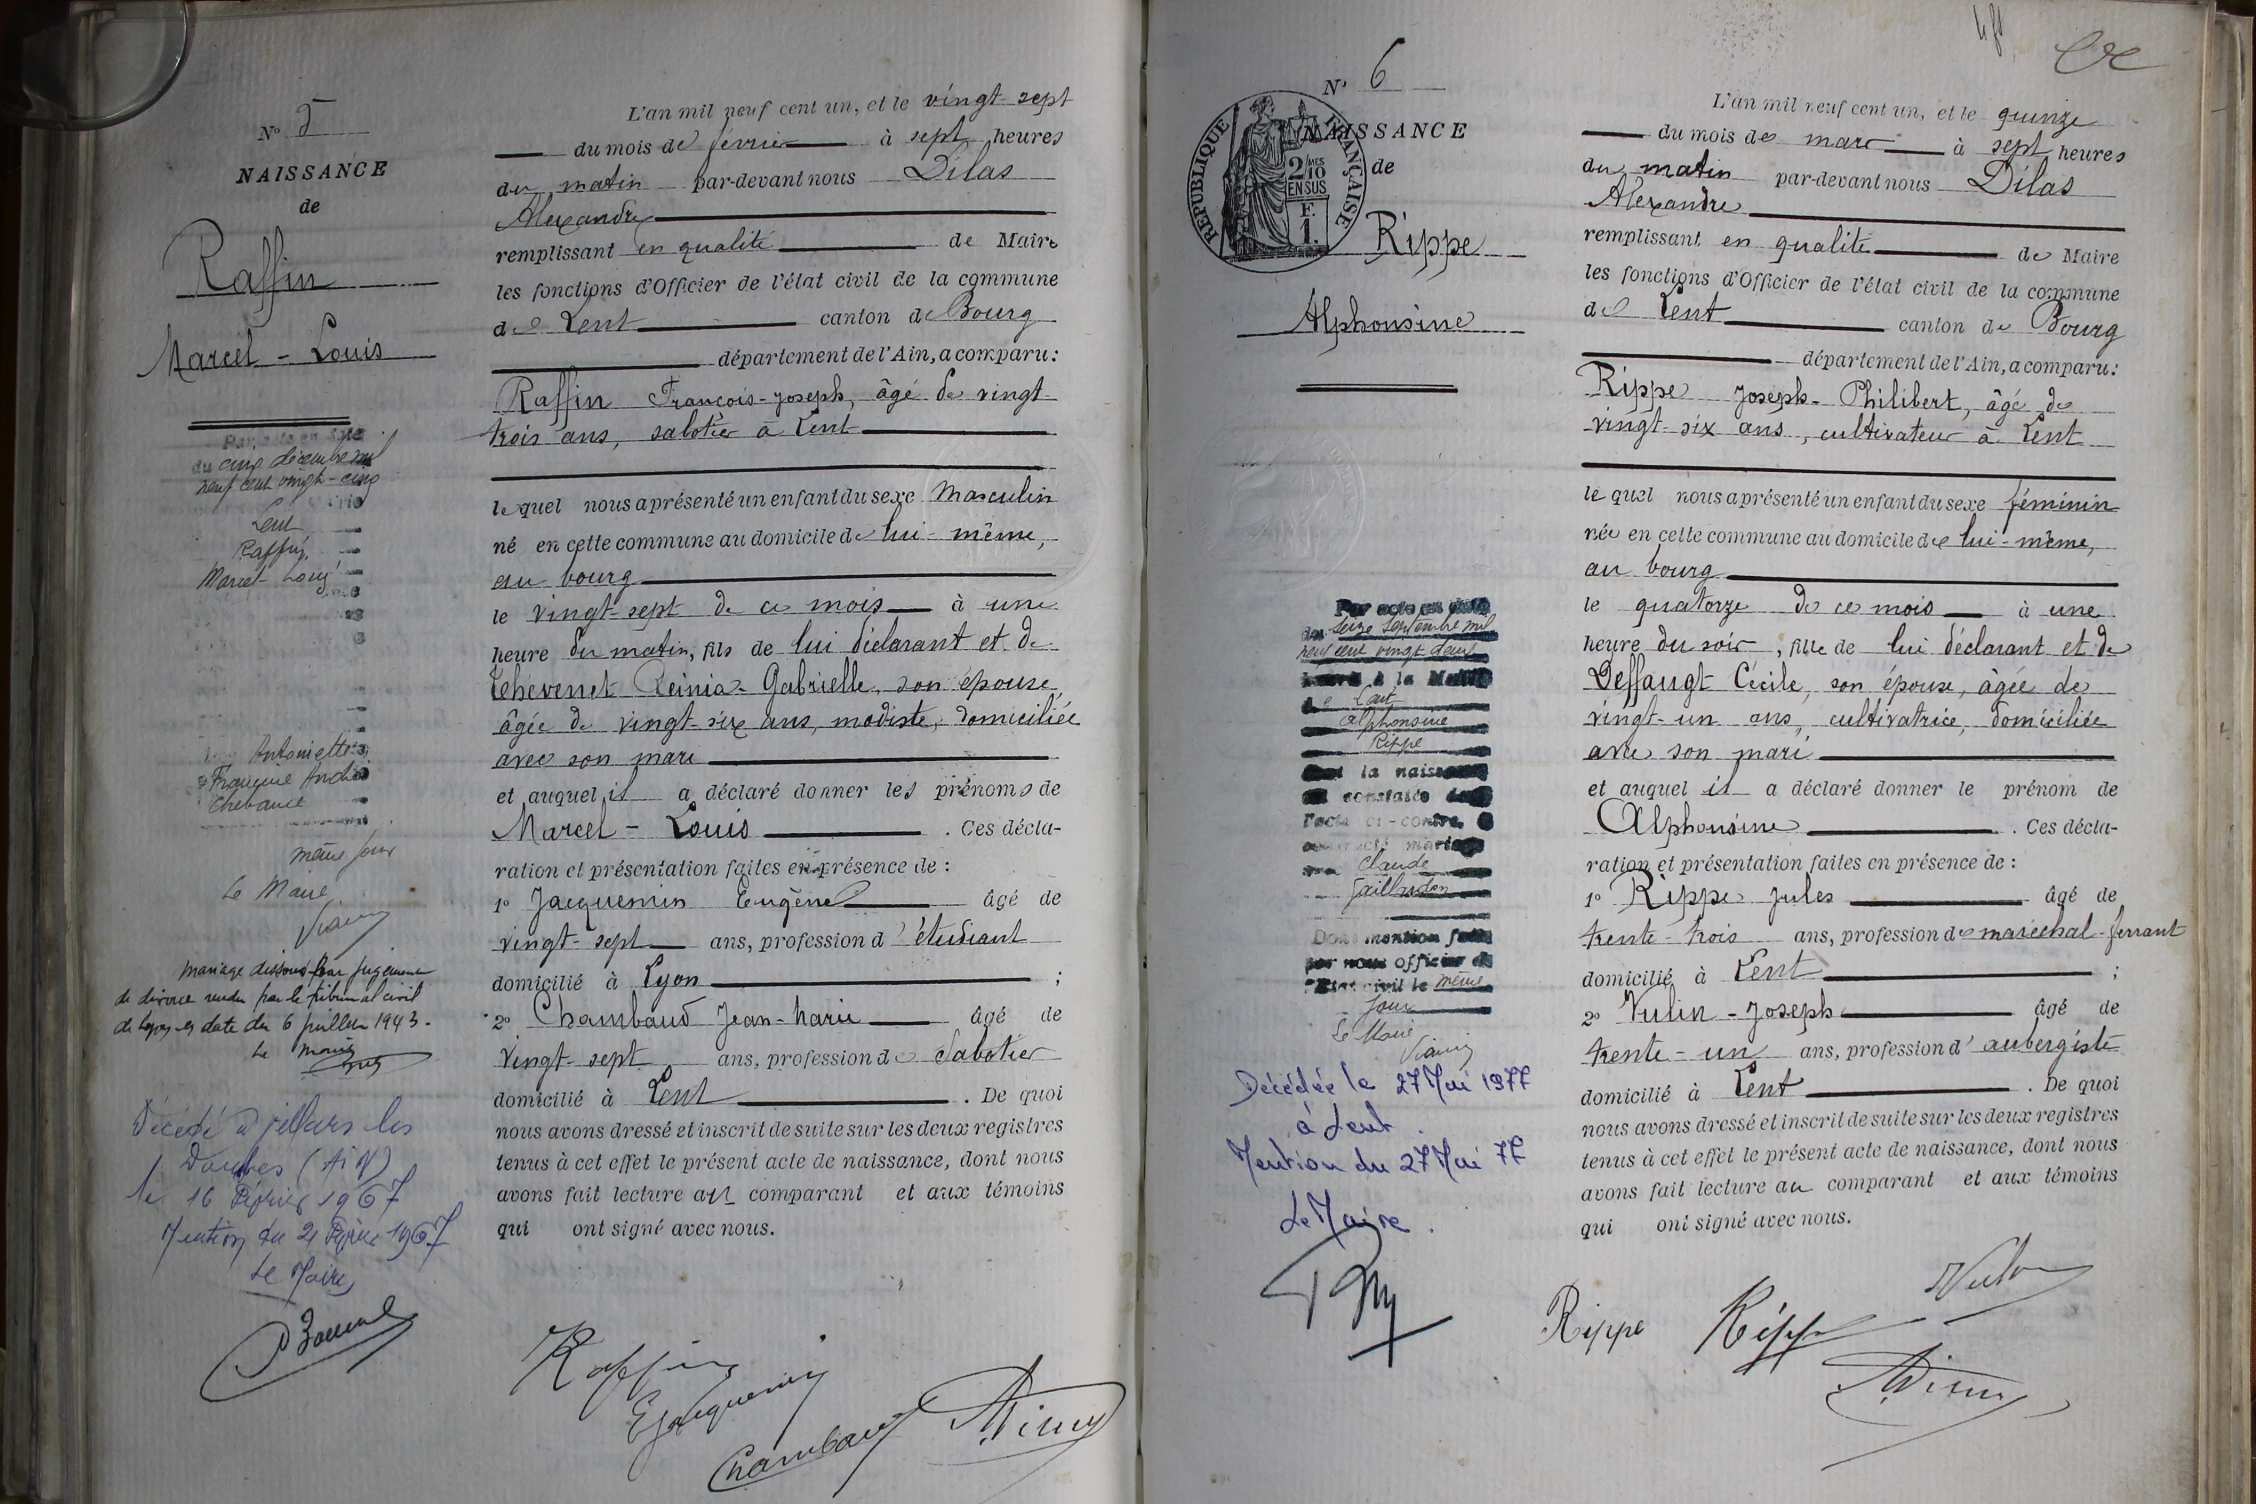 N° 5
NAISSANCE
de
Raffin
Marcel - Louis
du cinq décembre mil
neuf cent vingt-cinq
Lent
Raffin
Marcel-Louis
Antoinette
Françoise
même jour
Le Maire
Mariage dissous par jugement
de divorce rendu par le tribunal civil
de Lyon en date du 6 juillet 1943.
Le Maire
Décédé à Villars les
Dombes (AIN)
le 16 Février 1967
Mention du 21 Février 1967
Le Maire
L'an mil neuf cent un, et le vingt-sept
du mois de février à sept heures
du matin par-devant nous Dilas
Alexandre
remplissant en qualité de Maire
les fonctions d'Officier de l'état civil de la commune
de Lent canton de Bourg
département de l'Ain, a comparu:
Raffin François-Joseph, âgé de vingt-
trois ans, sabotier à Lent
le quel nous a présenté un enfant du sexe Masculin
né en cette commune au domicile de lui-même,
au bourg
le vingt-sept de ce mois à une
heure du matin, fils de lui déclarant et de
Thévenet Gabrielle, son épouse,
âgée de vingt-six ans, modiste, domiciliée
avec son mari
et auquel il a déclaré donner les prénoms de
Marcel - Louis . Ces décla-
ration et présentation faites en présence de :
1° Jacquemin Eugène âgé de
vingt-sept ans, profession d'étudiant
domicilié à Lyon ;
2° Chambaud Jean-Marie âgé de
vingt-sept ans, profession de Sabotier
domicilié à Lent . De quoi
nous avons dressé et inscrit de suite sur les deux registres
tenus à cet effet le présent acte de naissance, dont nous
avons fait lecture au comparant et aux témoins
qui ont signé avec nous.
Raffin
E Jacquemin
Chambaud
N° 6
NAISSANCE
de
REPUBLIQUE FRANÇAISE
2/10 EN SUS
F. 1.
Rippe
Alphonsine
Par acte en date
du seize septembre mil
neuf cent vingt deux
à la Mairie
Alphonsine
Rippe
dont la naissance
est constatée dans
l'acte ci-contre,
a contracté mariage
avec Claude
Dont mention faite
par nous officier de
l'Etat civil le même
jour
Le Maire
Décédée le 27 Mai 1977
à Lent.
Mention du 27 Mai 77
Le Maire.
L'an mil neuf cent un, et le quinze
du mois de mars à sept heures
du matin par-devant nous Dilas
Alexandre
remplissant en qualité de Maire
les fonctions d'Officier de l'état civil de la commune
de Lent canton de Bourg
département de l'Ain, a comparu:
Rippe Joseph-Philibert, âgé de
vingt-six ans, cultivateur à Lent
le quel nous a présenté un enfant du sexe féminin
née en cette commune au domicile de lui-même,
au bourg
le quatorze de ce mois à une
heure du soir, fille de lui déclarant et de
Deffaugt Cécile, son épouse, âgée de
vingt-un ans, cultivatrice, domiciliée
avec son mari
et auquel il a déclaré donner le prénom de
Alphonsine . Ces décla-
ration et présentation faites en présence de :
1° Rippe Jules âgé de
trente-trois ans, profession de maréchal-ferrant
domicilié à Lent ;
2° Vulin - Joseph âgé de
trente-un ans, profession d'aubergiste
domicilié à Lent . De quoi
nous avons dressé et inscrit de suite sur les deux registres
tenus à cet effet le présent acte de naissance, dont nous
avons fait lecture au comparant et aux témoins
qui ont signé avec nous.
Vulin
Rippe Rippe